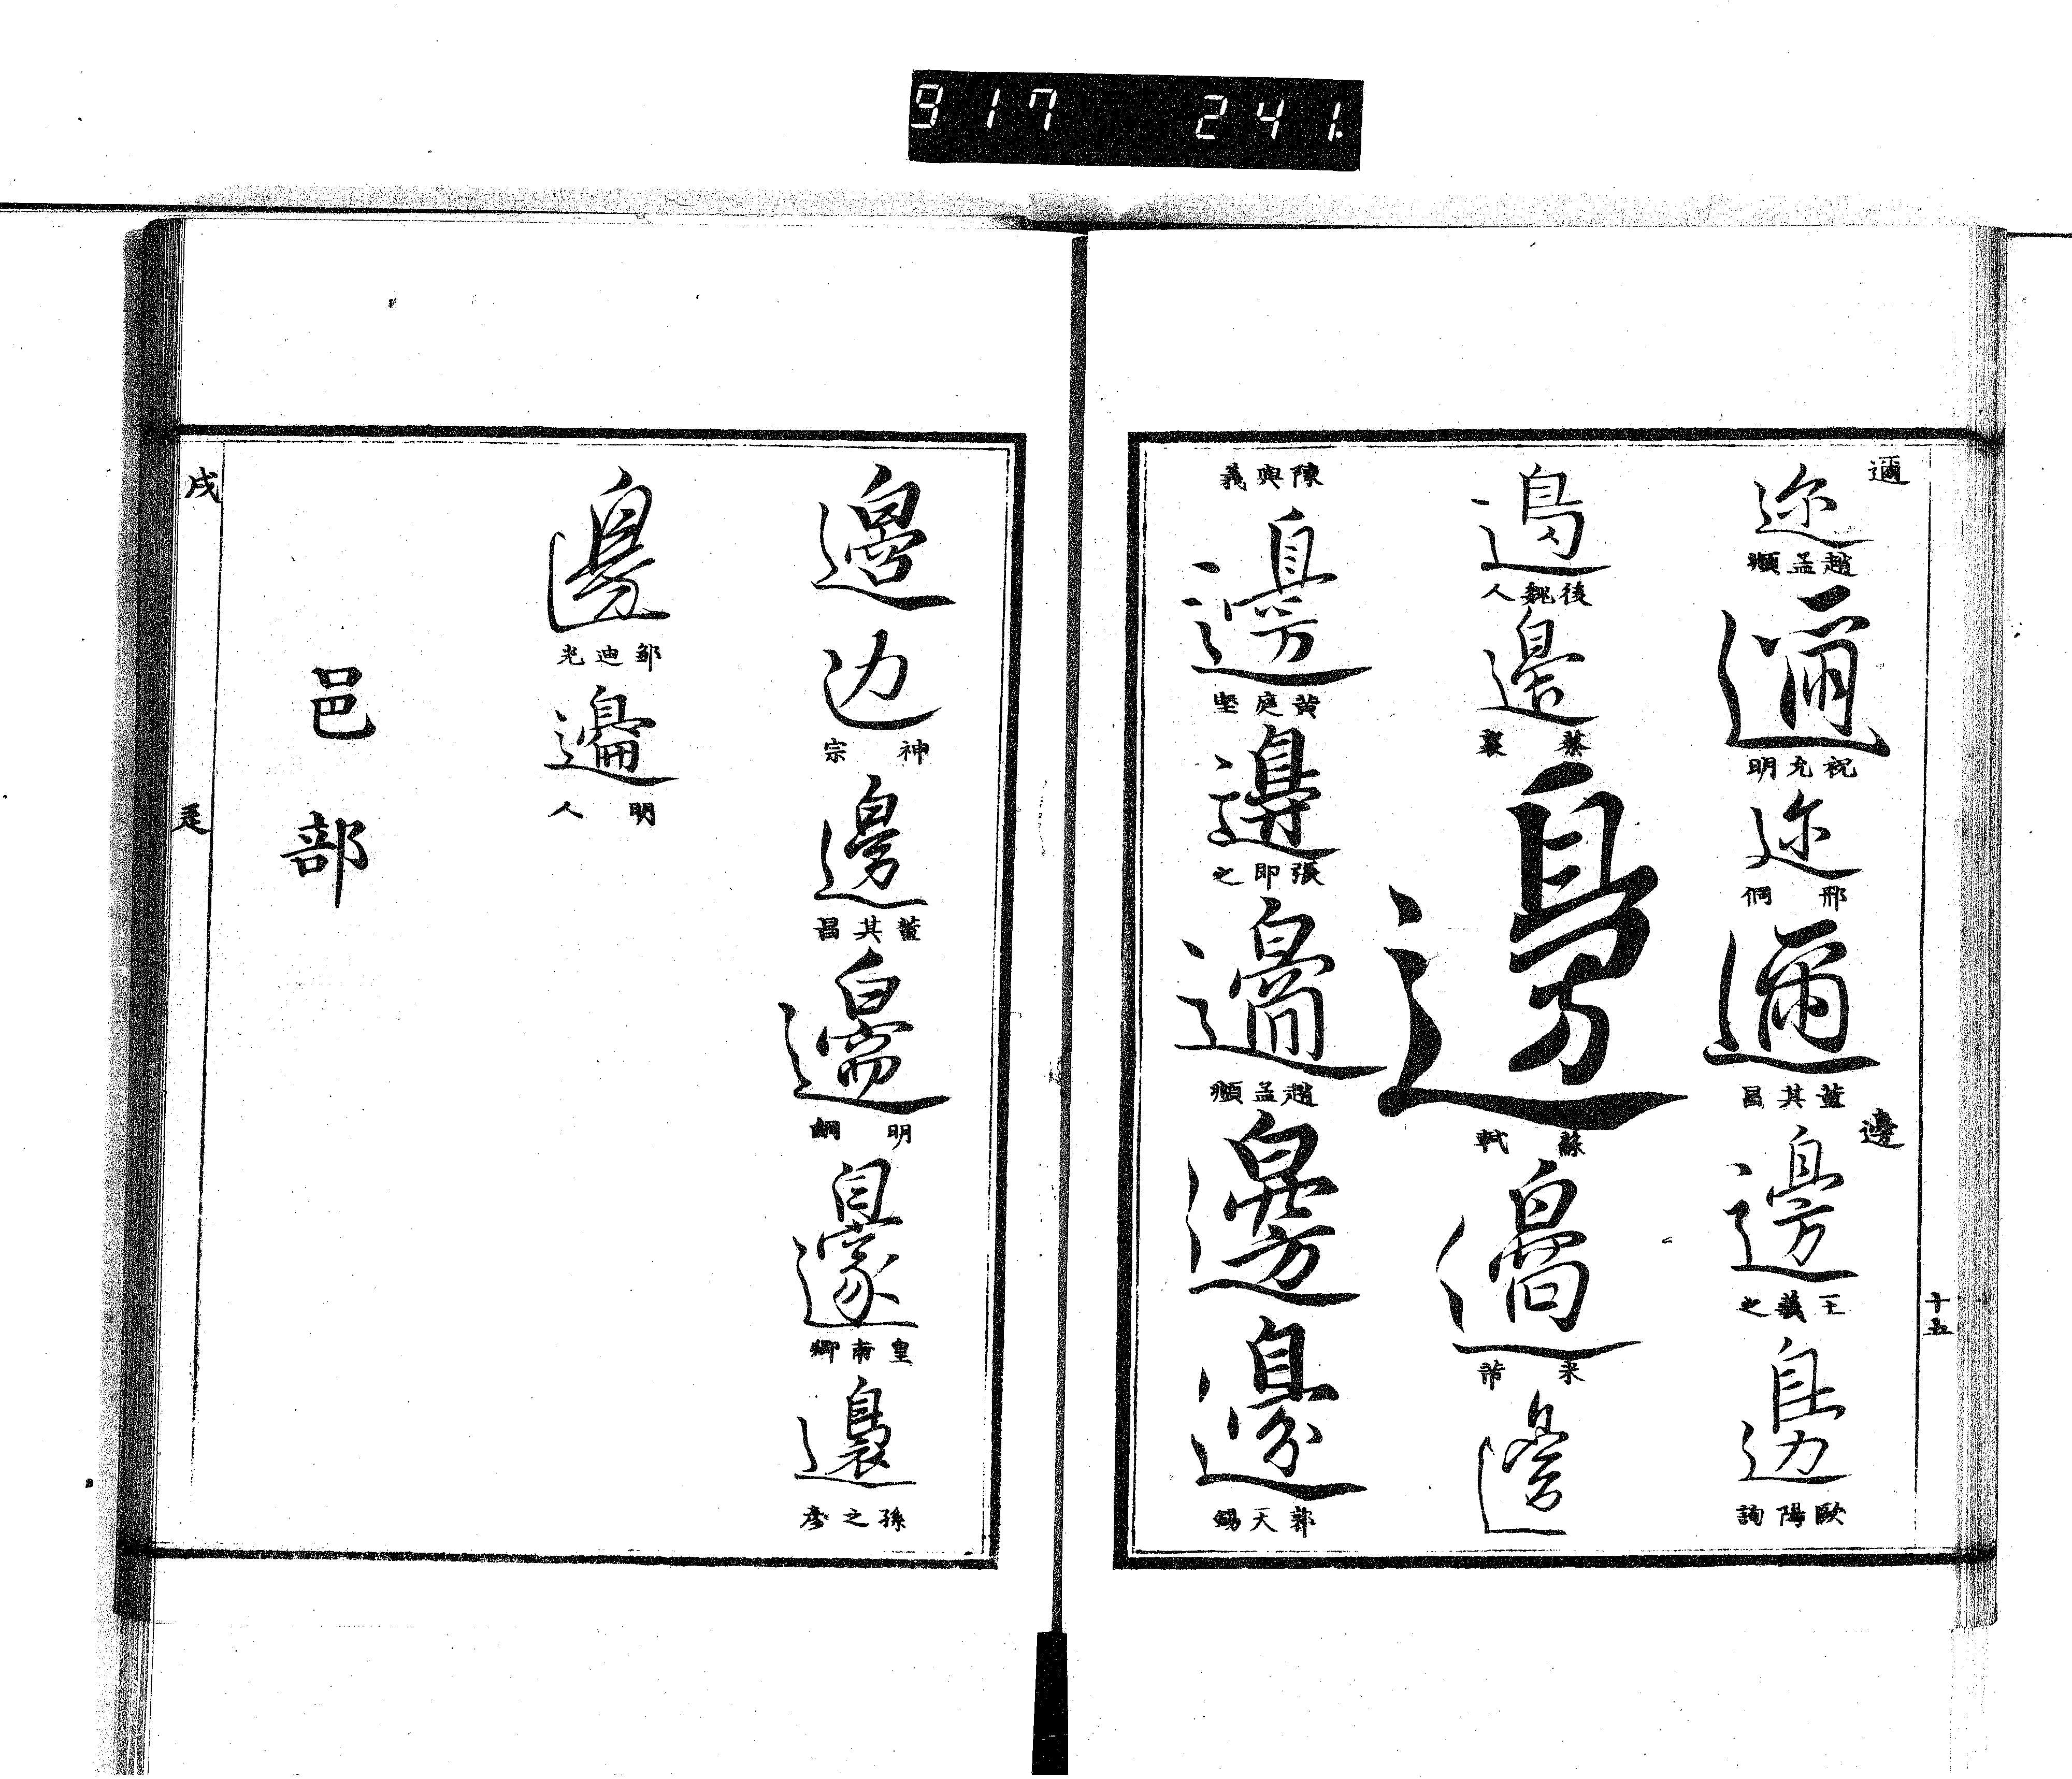 917 241.
邇
迩
趙孟頫
邇
祝允明
迩
邢侗
邇
董其昌
邊
邊
王羲之
邊
歐陽詢
十五
邊
後魏人
邊
蔡襄
邊
蘇軾
邊
米芾
邊
陳與義
邊
黃庭堅
邊
張即之
邊
趙孟頫
邊
邊
郭天錫
邊
边
神宗
邊
董其昌
邊
明
邊
皇甫
邊
孫之
邊
鄒迪光
邊
明人
邑部
戌
辵